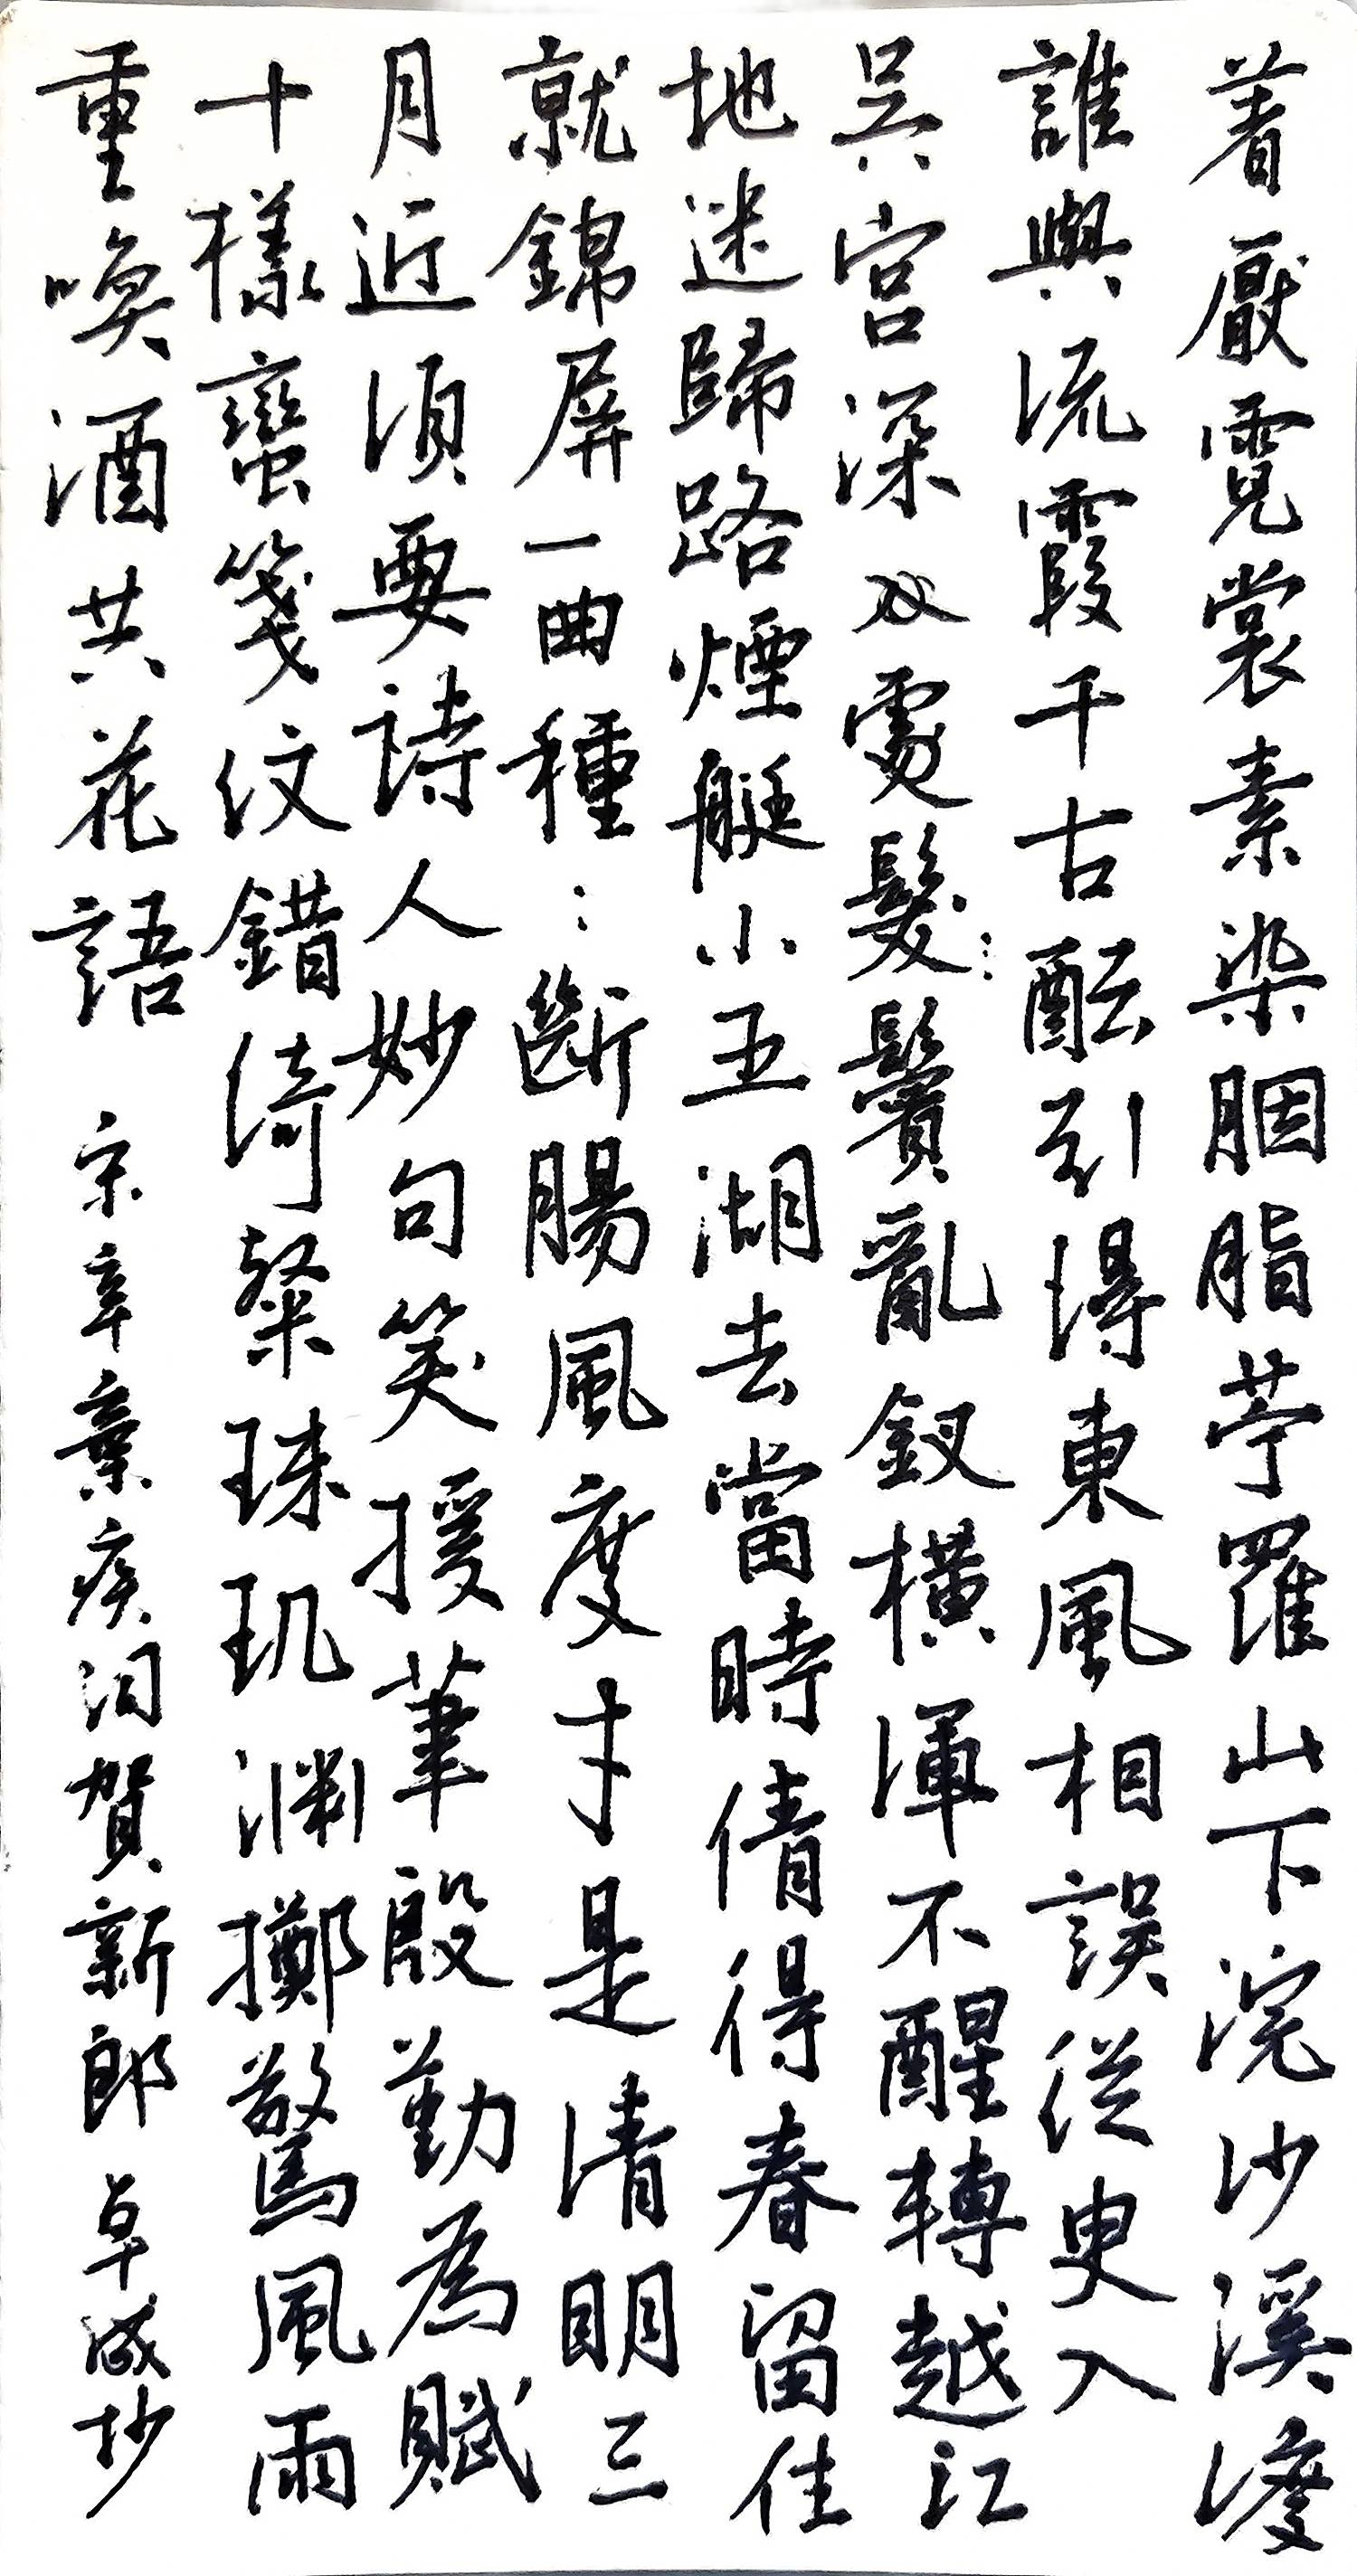 著厭霓裳素染胭脂苧羅山下浣沙溪渡
誰與流霞千古酝引得東風相誤従臾入
吳宮深處髮鬢亂釵橫渾不醒轉越江
地迷歸路煙艇小五湖去當時倩得春留住
就錦屏一曲種：斷腸風度才是清明三
月近須要詩人妙句笑援筆殷勤為賦
十樣蠻箋紋錯綺粲珠玑渊擲驚風雨
重喚酒共花語 宋辛棄疾词賀新郎 卓成抄